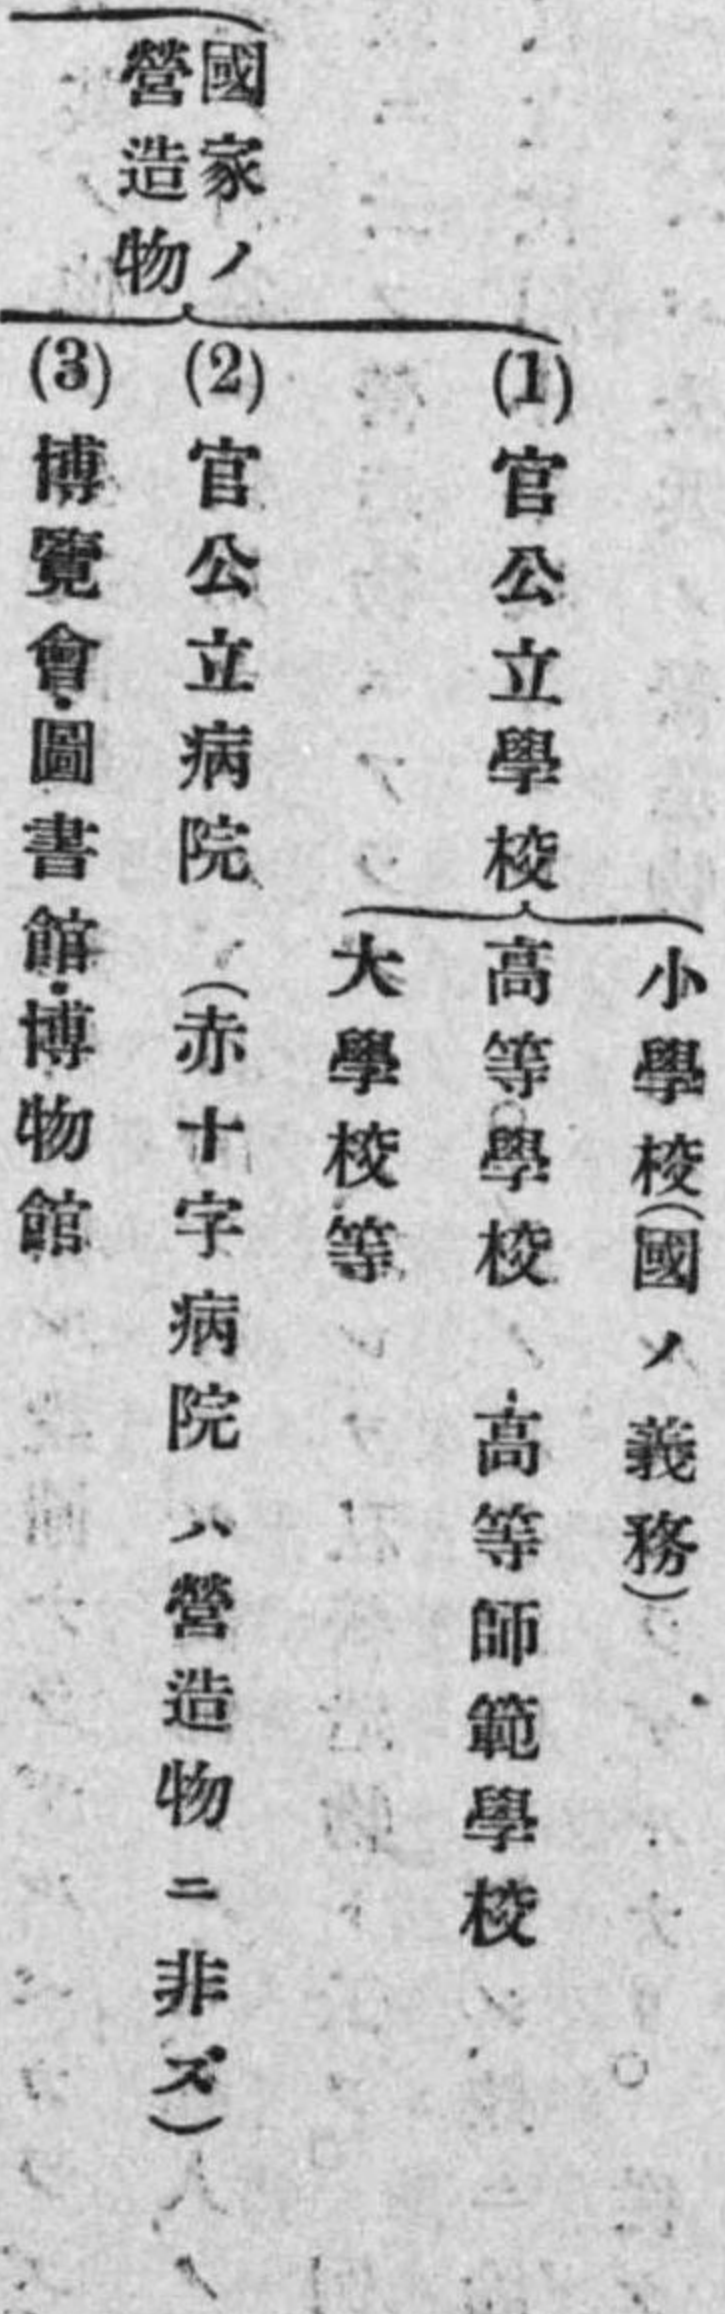 國家ノ
營造物
(1)官公立學校
小學校(國ノ義務)
高等學校 高等師範學校
大學校等
(2)官公立病院(赤十字病院ハ營造物ニ非ズ)
(3)博覽會・圖書館・博物館